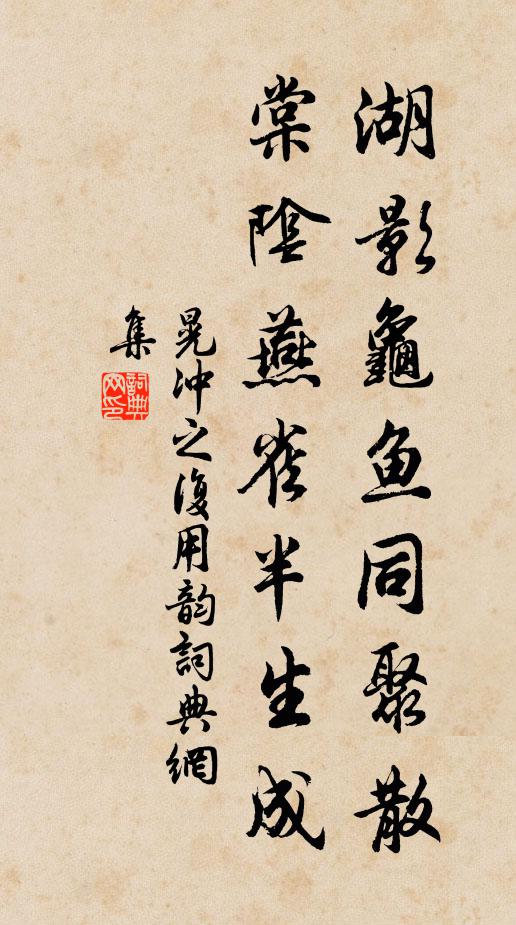 湖影龜魚同聚散
棠陰燕雀半生成
晁沖之復用韵詞典網
集
詞典
网印